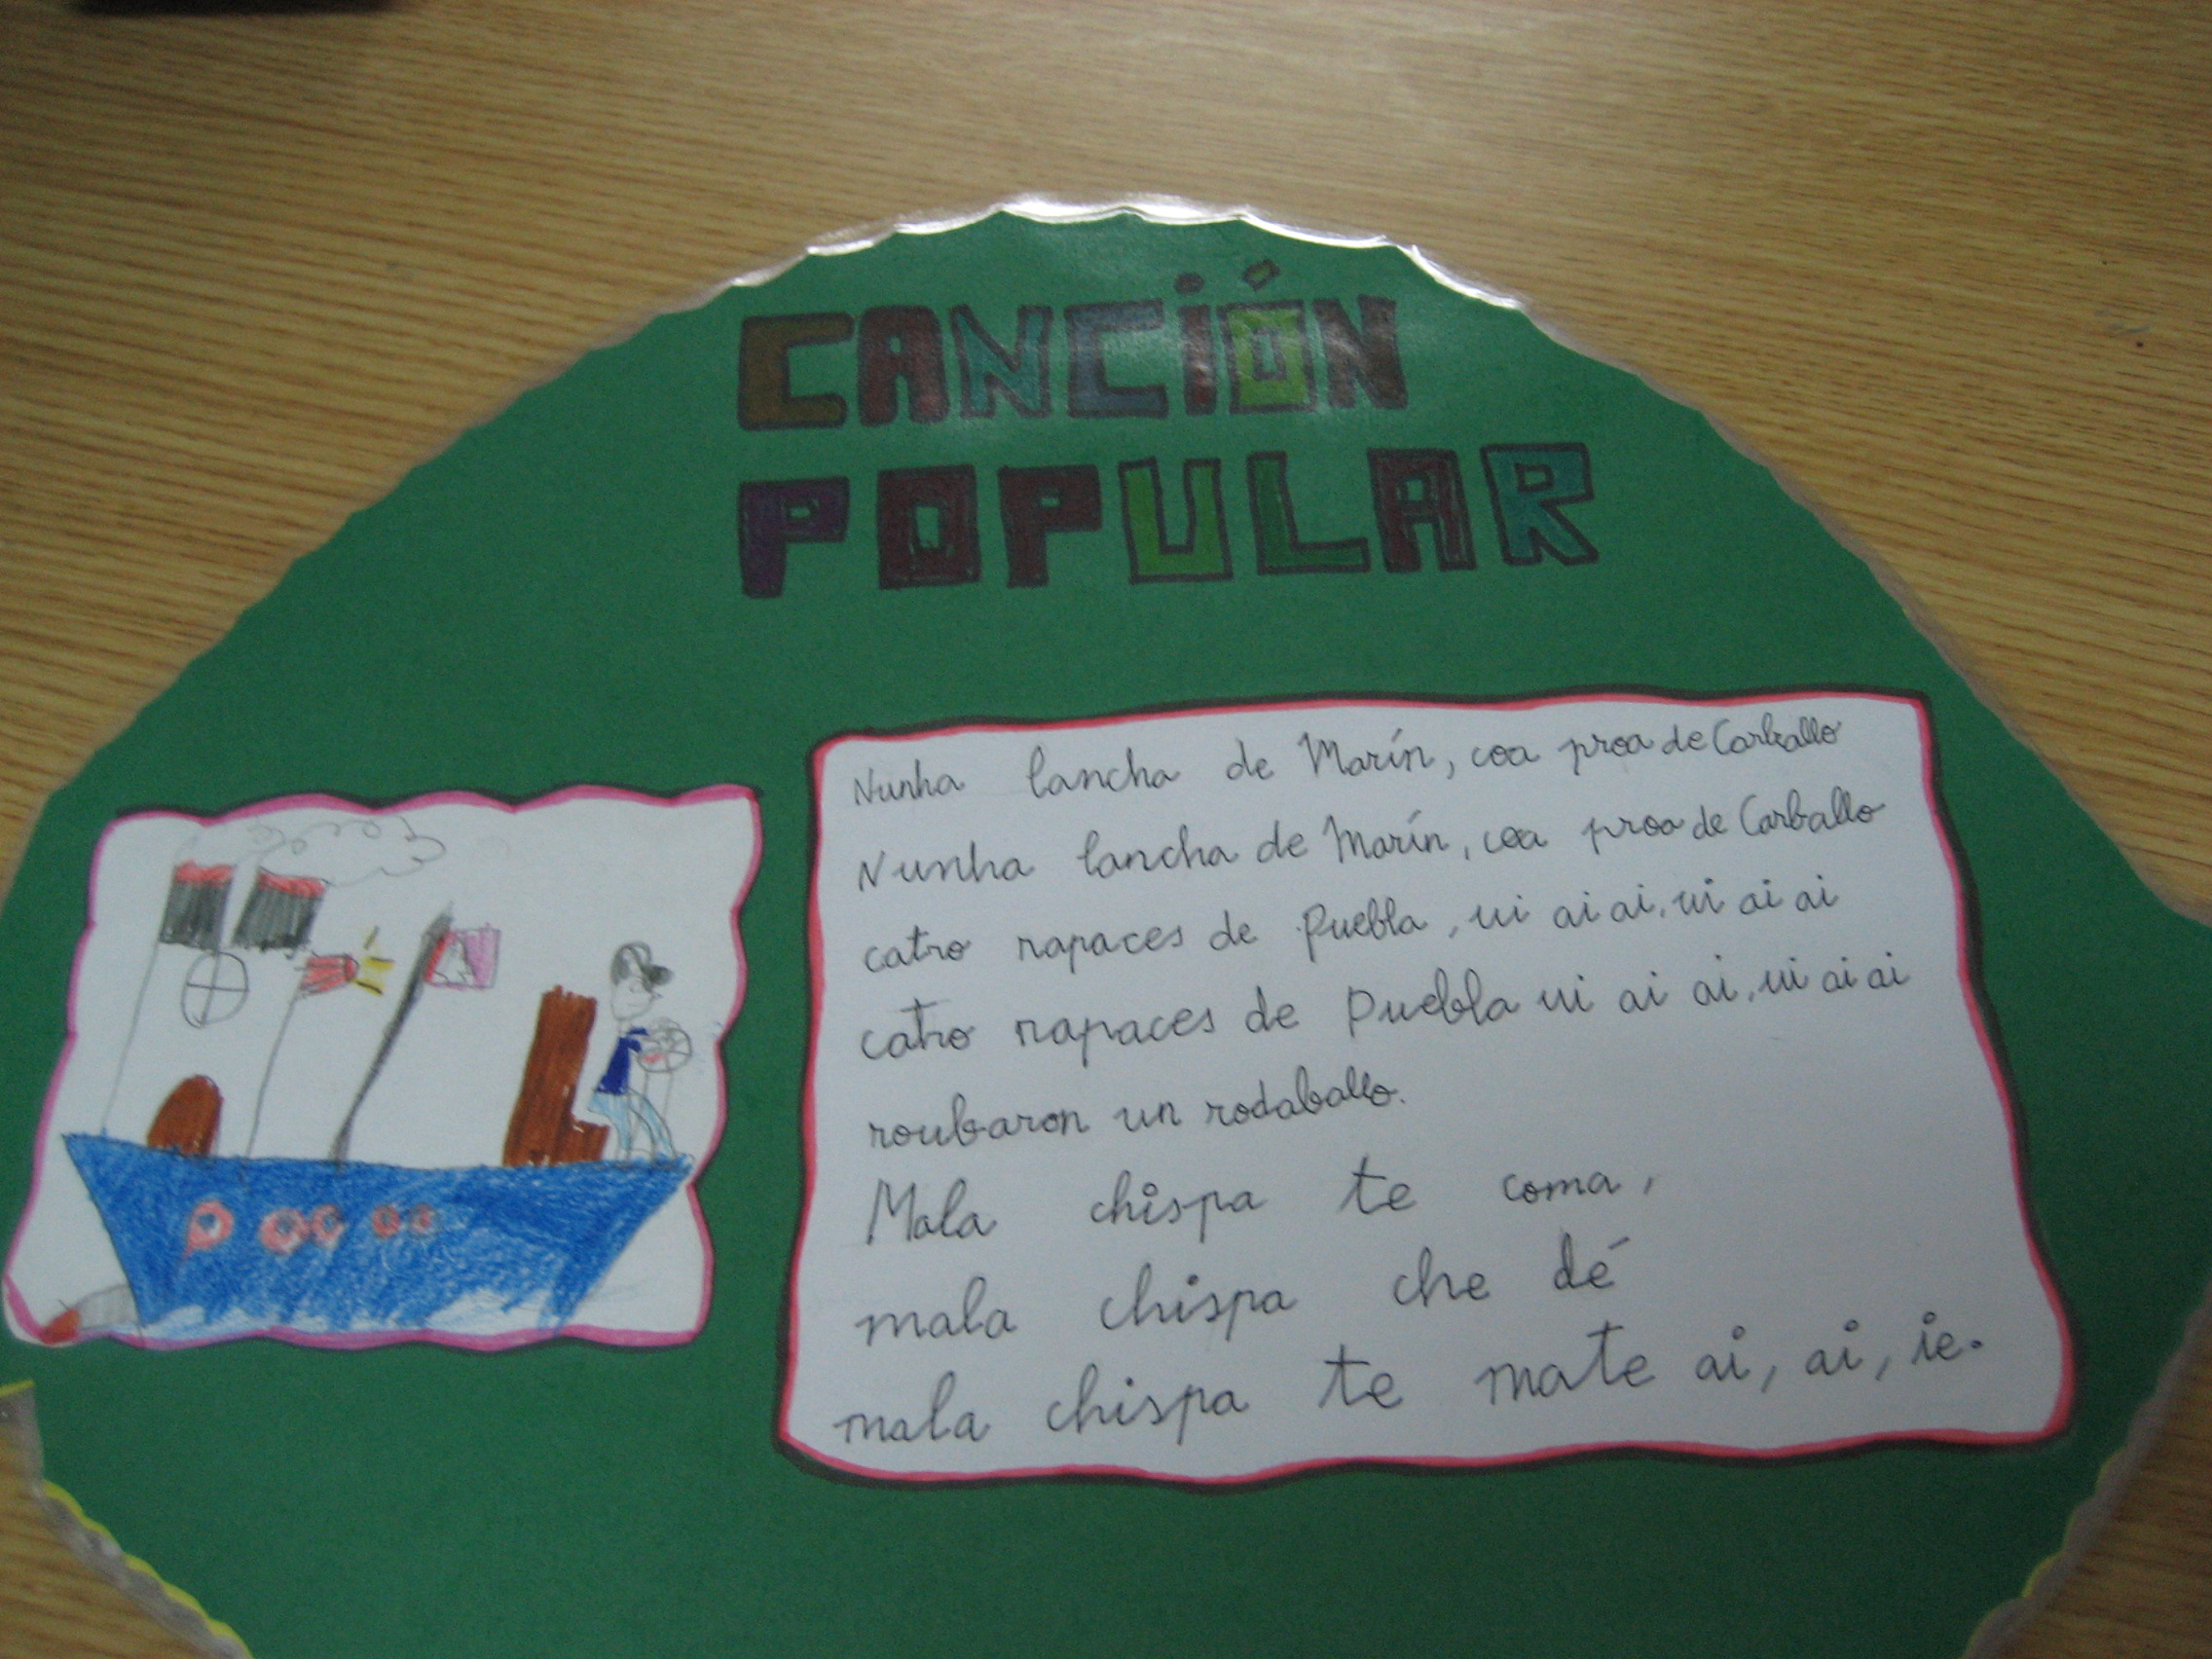 CANCIÓN
POPULAR
Nunha lancha de Marín, coa proa de Carballo
Nunha lancha de Marín, coa proa de Carballo
catro rapaces de Puebla, ui ai ai, ui ai ai
catro rapaces de Puebla ui ai ai, ui ai ai
roubaron un rodaballo.
Mala chispa te coma,
mala chispa che dé
mala chispa te mate ai, ai, ie.